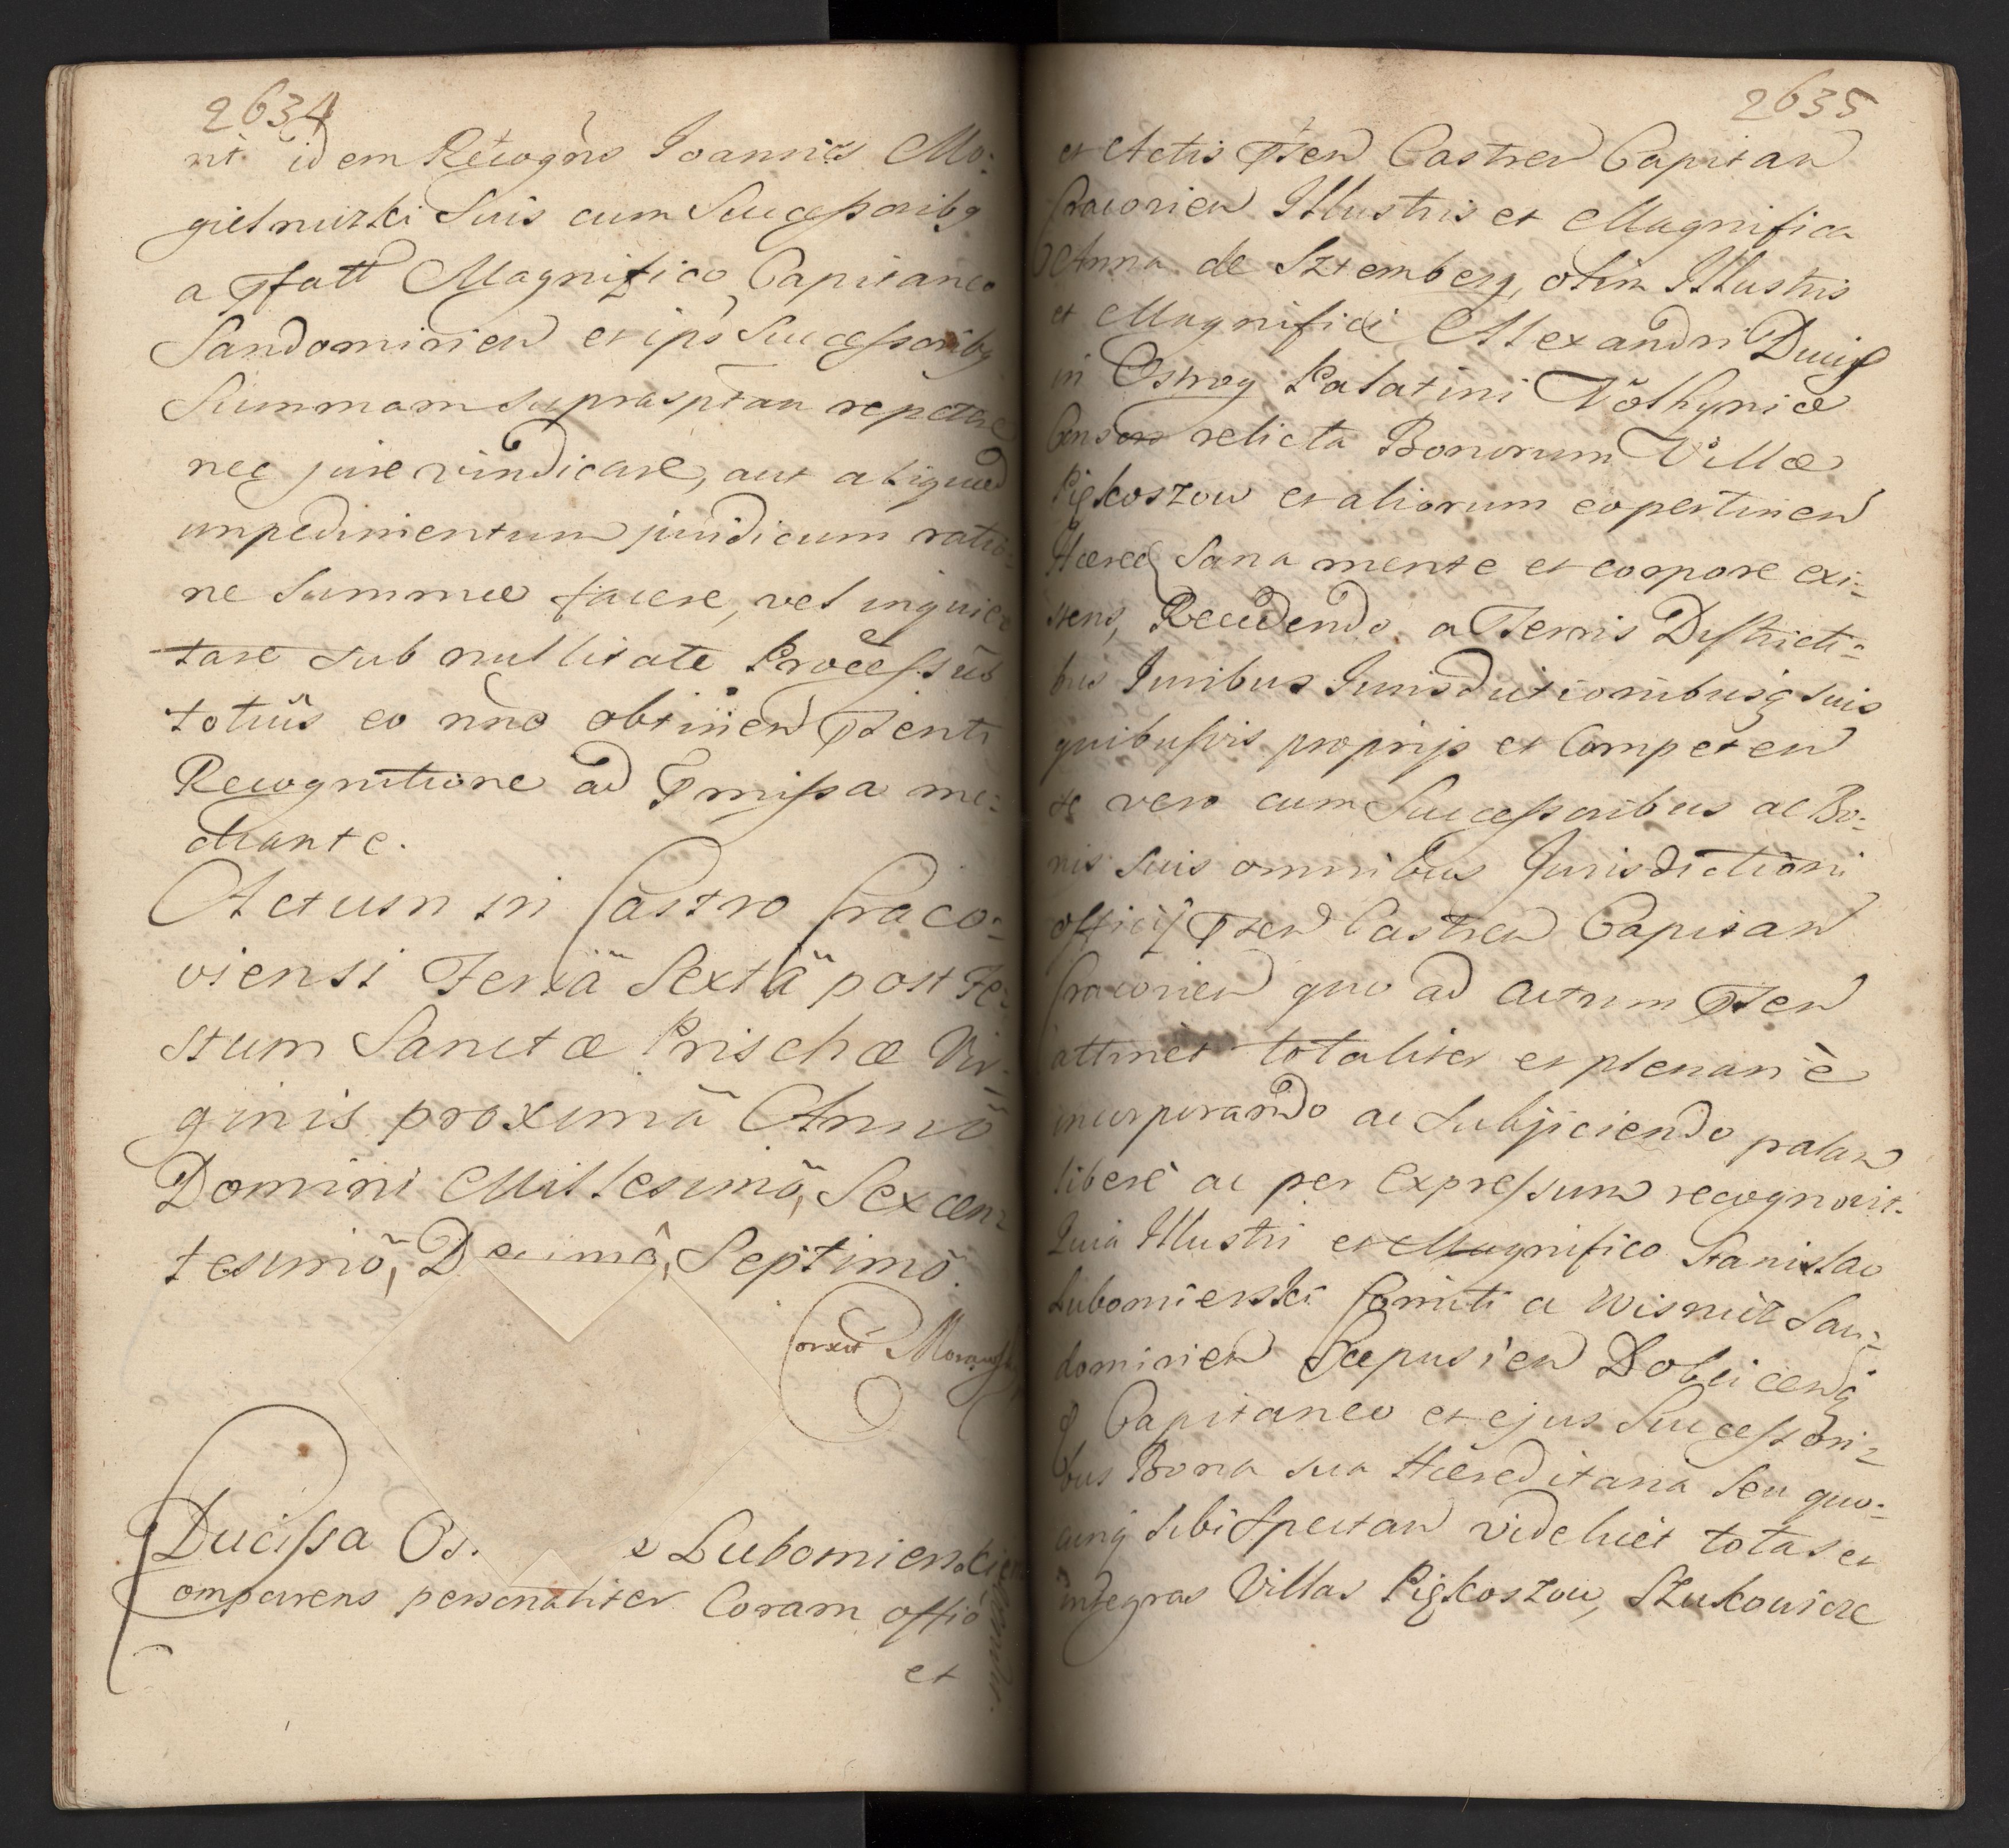 2634
nt idem Recogñs Joannes Mo-
gielnicki suis cum Successoribq
a Pfatt Magnifico Capitaneo
Sandomirien et ips Successoribq
Summam supraspttam repetere
nec jure vindicare, aut aliquod
impedimentum juridicum ratio-
ne Summæ facere, vel inquie-
tare sub nullitate Processûs
totiûs eo nño obtinen Psenti
Recognitione ad Pmissa me-
diante.
Actum in Castro Craco-
viensi Feriâ Sextâ post Fe-
stum Sanctæ Prischæ Vir-
ginis proximâ Annô
Domini Millesimô, Sexcen-
tesimô, Decimô, Septimô.
Correxit
Ducissa Os. Lubomierski
Comparens personaliter Coram offiô
et
2635
et Actis Psen Castren Capitan
Cracovien Illustris et Magnifica
Anna de Sztemberg, olim Illustris
et Magnifici Alexandri Ducis
in Ostrog Palatini Volhyniæ
Consors relicta Bonorum Villæ
Piękoszow et aliorum eo pertinen
Hæred Sana mente et corpore exi-
stens, Recedendo a Terris Districti-
bus Juribus Jurisdictionibusq suis
quibusvis proprijs et Competen
se vero cum Successoribus ac Bo-
nis suis omnibus Jurisdictioni
officij Psen Castren Capitan
Cracovien quo ad actum Psen
attinet totaliter et plenariè
incorporando ac subijciendo palam
liberè ac per expressum recognovit.
Quia Illustri et Magnifico Stanislao
Lubomierski Comiti a Wisnicz San-
domirien Scepusien Dobciceng
q Capitaneo et ejus Successori-
bus Bona sua Hæreditaria seu quo-
cunq sibi spectan videlicet totas et
integras Villas Piękoszow, Szukowice